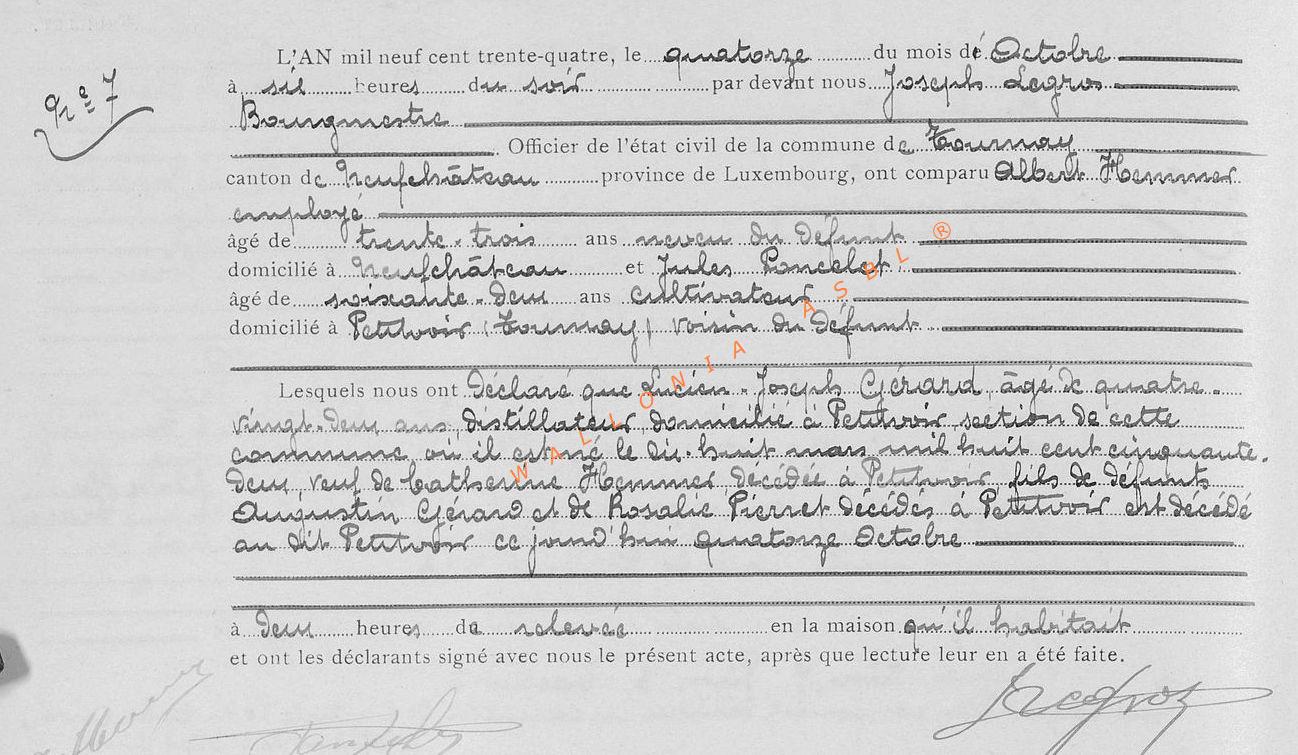 L'AN mil neuf cent trente-quatre, le quatorze du mois de Octobre
n° 7
à six heures du soir par devant nous Joseph Legros
Bourgmestre
Officier de l'état civil de la commune de Tournay
canton de Neufchâteau province de Luxembourg, ont comparu Albert Hemmer
employé
âgé de trente-trois ans neveu du défunt
domicilié à Neufchâteau et Jules Poncelet
âgé de soixante-deux ans cultivateur
domicilié à Petitvoir (Tournay) voisin du défunt
Lesquels nous ont déclaré que Lucien-Joseph Gérard, âgé de quatre-
vingt-deux ans, distillateur domicilié à Petitvoir section de cette
commune, où il est né le dix-huit mars mil huit cent cinquante-
deux, veuf de Catherine Hemmer décédée à Petitvoir, fils de défunts
Augustin Gérard et de Rosalie Pierret décédés à Petitvoir est décédé
au dit Petitvoir ce jourd'hui quatorze Octobre
à deux heures de relevée en la maison qu'il habitait
et ont les déclarants signé avec nous le présent acte, après que lecture leur en a été faite.
Legros
WALLONIA ASBL ®